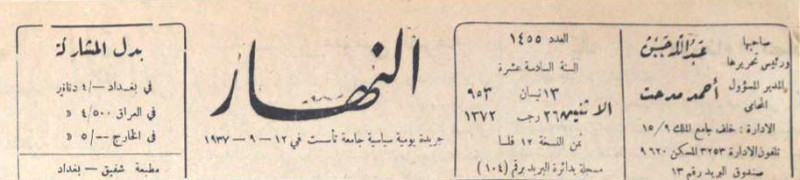 صاحبها
ورئيس تحريرها
عبد الله حسن
المدير المسؤول
المحامي
أحمد مدحت
الادارة : خلف جامع الملك ١٥/٩
تلفون الادارة ٣٢٥٣ المسكن ٩٦٢٠
صندوق البريد رقم ١٣
العدد ١٤٥٥
السنة السادسة عشرة
١٣ نيسان ٩٥٣
الاثنين
٢٦ رجب ١٣٧٢
ثمن النسخة ١٢ فلسا
مسجلة بدائرة البريد برقم (١٠٤)
النهار
جريدة يومية سياسية جامعة تأسست في ١٢ - ٩ - ١٩٣٧
بدل المشاركة
في بغداد -/٤ دنانير
في العراق ٤/٥٠٠ »
في الخارج --/٥ »
مطبعة شفيق - بغداد